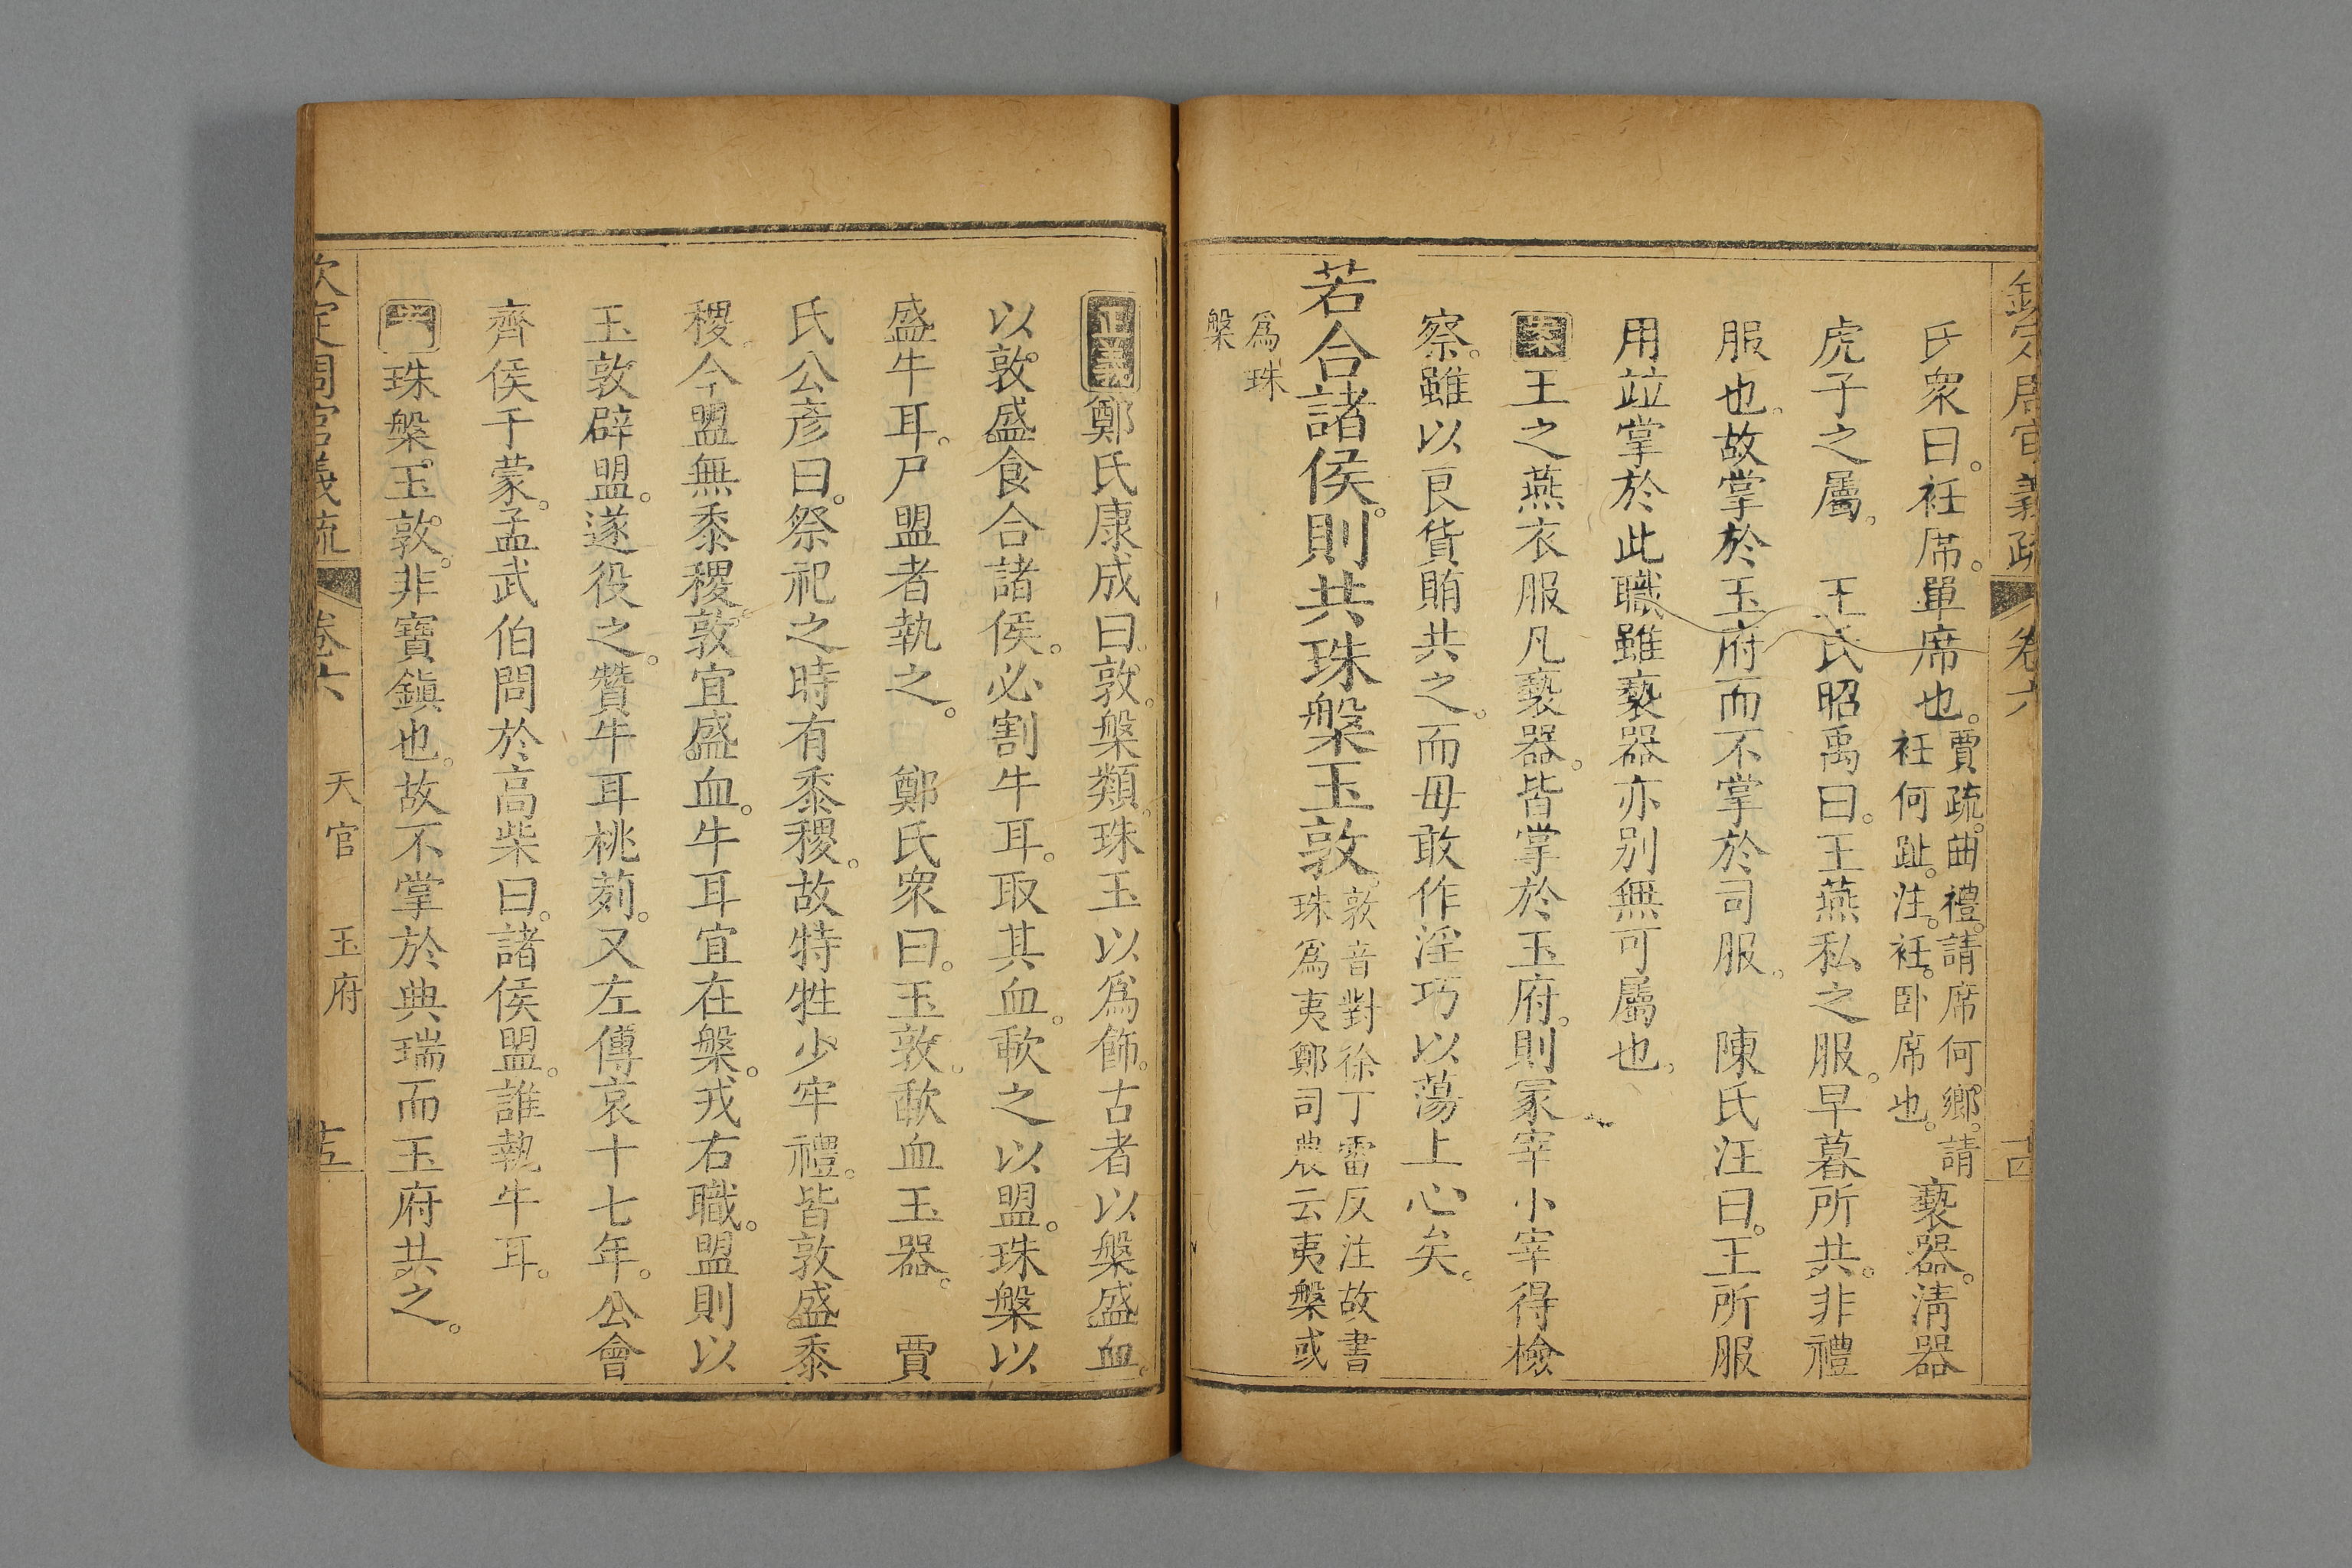 欽定周官義疏 卷六 十四
氏衆曰。衽席。單席也。賈疏。曲禮。請席何鄉。請衽何趾。注。衽。卧席也。 褻器。清器
虎子之屬。 王氏昭禹曰。王燕私之服。早暮所共。非禮
服也。故掌於玉府而不掌於司服。 陳氏汪曰。王所服
用竝掌於此職雖褻器亦別無可屬也。
案王之燕衣服凡褻器。皆掌於玉府。則冢宰小宰得檢
察。雖以良貨賄共之。而毋敢作淫巧以蕩上心矣。
若合諸侯。則共珠槃玉敦。敦音對徐丁雷反注故書珠爲夷鄭司農云夷槃或
爲珠槃
正義鄭氏康成曰。敦。槃類。珠玉以爲飾。古者以槃盛血。
以敦盛食合諸侯。必割牛耳。取其血。歃之以盟。珠槃以
盛牛耳。尸盟者執之。 鄭氏衆曰。玉敦。歃血玉器。 賈
氏公彦曰。祭祀之時有黍稷。故特牲少牢禮。皆敦盛黍
稷。今盟無黍稷。敦宜盛血。牛耳宜在槃。戎右職。盟則以
玉敦辟盟。遂役之。贊牛耳桃茢。又左傳哀十七年。公會
齊侯于蒙。孟武伯問於高柴曰。諸侯盟。誰執牛耳。
珠槃。玉敦。非寶鎭也。故不掌於典瑞而玉府共之。
欽定周官義疏 卷六 天官 玉府 十五